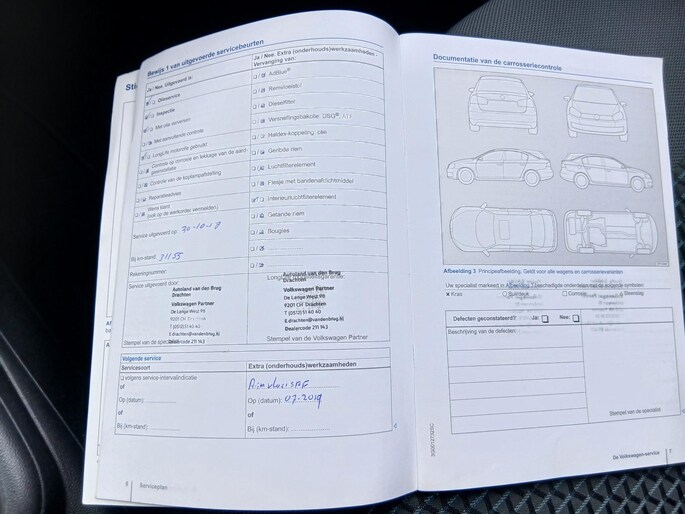 Sti
Bewijs 1 van uitgevoerde servicebeurten
Ja / Nee. Uitgevoerd is:
Olieservice
Inspectie
Met olie verversen
Met aanvullende controle
LongLife motorolie gebruikt
Controle op corrosie en lekkage van de
Controle van de koplampafstelling
Reparatieadvies
Wens klant
(ook op de werkorder vermelden)
Service uitgevoerd op: 30-10-17
Bij km-stand: 31155
Rekeningnummer:
Service uitgevoerd door:
Autoland van den Brug
Drachten
Volkswagen Partner
De Lange West 98
9201 CH Drachten
T (0512) 51 40 40
E.drachten@vandenbrug.nl
Dealercode 211 143
Stempel van de
Ja / Nee. Extra (onderhouds)werkzaamheden -
Vervanging van:
AdBlue®
Remvloeistof
Dieselfilter
Versnellingsbakolie: DSG®,
Haldex-koppeling: olie
Geribde riem
Luchtfilterelement
Flesje met bandenafdichtmiddel
Interieurluchtfilterelement
Getande riem
Bougies
Autoland van den Brug
Drachten
Volkswagen Partner
De Lange West 98
9201 CH Drachten
T (0512) 51 40 40
E.drachten@vandenbrug.nl
Dealercode 211 143
Stempel van de Volkswagen Partner
Volgende service
Servicesoort
volgens service-intervalindicatie
of
Op (datum):
of
Bij (km-stand):
Extra (onderhouds)werkzaamheden
Op (datum): 07-2019
of
Bij (km-stand):
6 Serviceplan
Documentatie van de carrosseriecontrole
Afbeelding 3 Principeafbeelding. Geldt voor alle wagens en carrosserievarianten
Uw specialist markeert in Afbeelding 3 beschadigde onderdelen met de volgende symbolen:
Kras
Buil/deuk
Corrosie
Steenslag
Defecten geconstateerd? Ja: Nee:
Beschrijving van de defecten:
Stempel van de specialist
De Volkswagen-service 7